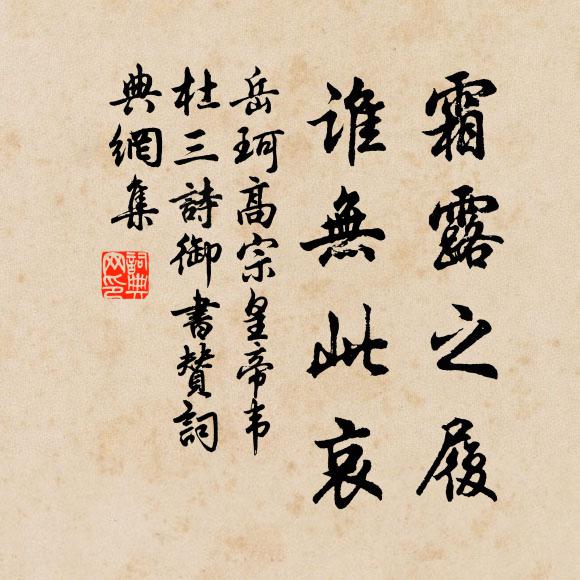 霜露之履
誰無此哀
岳珂高宗皇帝韦
杜三詩御書贊詞
典網集
詞典網印